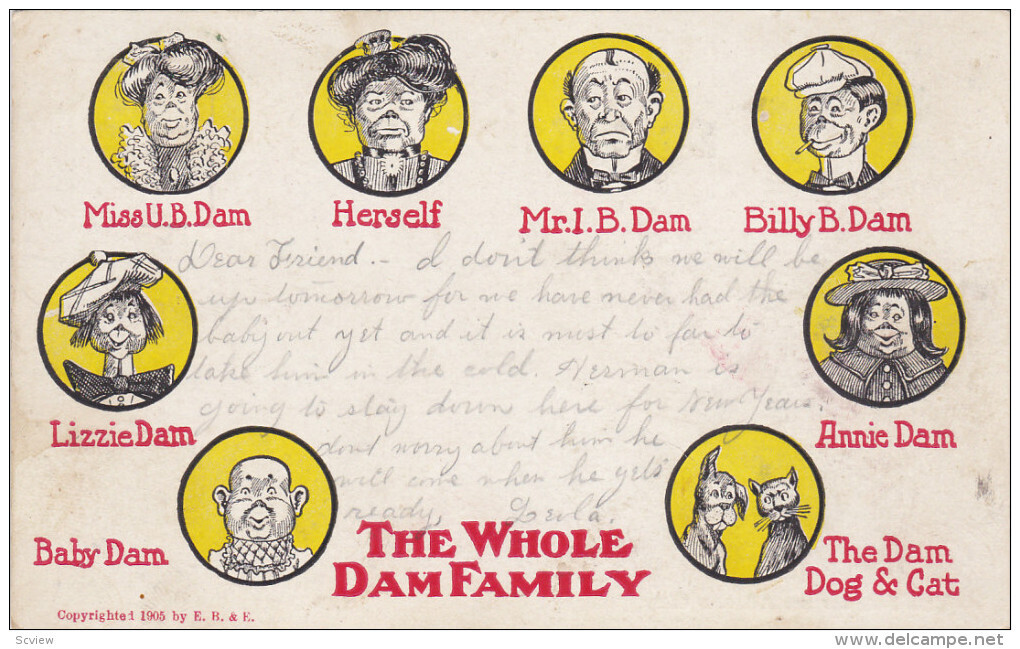 Miss U.B. Dam
Herself
Mr. I. B. Dam
Billy B. Dam
Dear Friend. - I don't think we will be
up tomorrow for we have never had the
baby out yet and it is most to far to
take him in the cold. Herman is
going to stay down here for New Years.
dont worry about him he
will come when he gets
ready,
Lizzie Dam
Annie Dam
Baby Dam
The Whole
Dam Family
The Dam
Dog & Cat
Copyrighted 1905 by E. B. & E.
Scview
delcampe.net